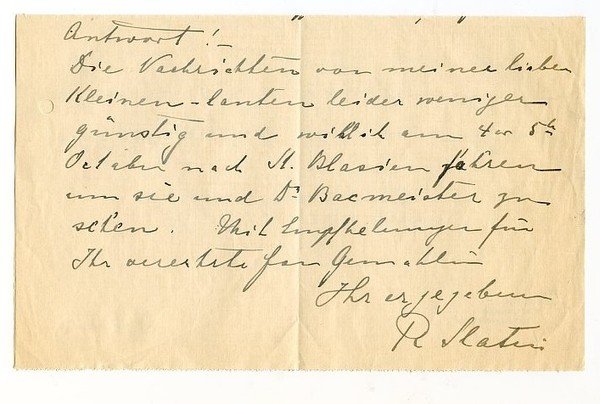 Antwort! –
Die Nachrichten von meiner lieben
Kleinen – lauten leider weniger
günstig und will ich am 4 or 5th
October nach St. Blasien fahren
um sie und Dr Bacmeister zu
sehen. Mit Empfhelungen für
Ihr vererhrte Frau Gemahlin
Ihr ergebener
R Slatin